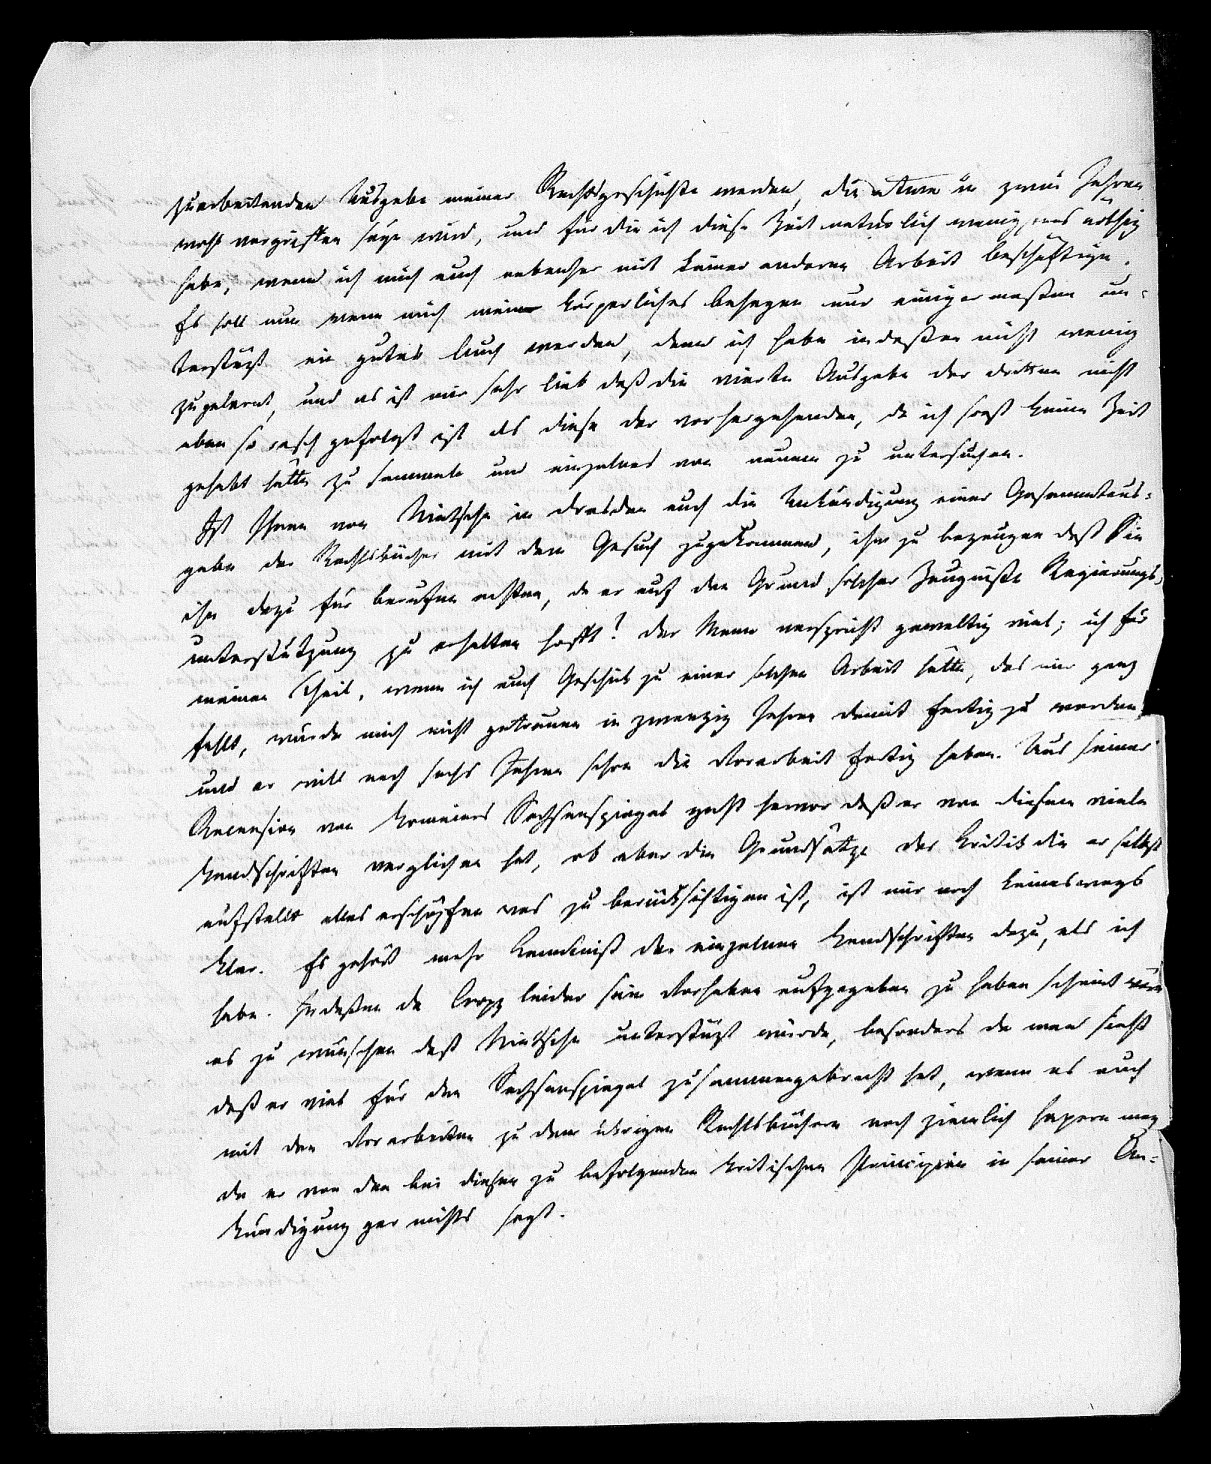 zuarbeitenden Ausgabe meiner Rechtsgeschichte werden, die etwa in zwei Jahren
wohl vergriffen seyn wird, und für die ich diese Zeit natürlich wenig was nöthig
habe, wenn ich mich auch nebenher mit keiner anderen Arbeit beschäftige.
Es soll nun wenn mich mein körperliches befinden nur einigermaßen un-
terstüzt ein gutes Buch werden, denn ich habe indeßen nicht wenig
zugelernt, und es ist mir sehr lieb daß die vierte Ausgabe der dritten nicht
eben so rasch gefolgt ist als diese der vorhergehenden, da ich sonst keine Zeit
gehabt hätte zu sammeln und einzelnes von neuem zu untersuchen.
Ist Ihnen von Nietzsche in Dresden auch die Ankündigung einer Gesammtaus-
gabe der Rechtsbücher mit dem Gesuch zugekommen, ihm zu bezeugen daß Sie
ihn dazu für berufen achten, da er auf den Grund solcher Zeugniße Regierungs-
unterstützung zu erhalten hofft? Der Mann verspricht gewaltig viel; ich für
meinen Theil, wenn ich auch Geschick zu einer solchen Arbeit hätte, das mir ganz
fehlt, würde mich nicht getrauen in zwanzig Jahren damit fertig zu werden,
und er will nach sechs Jahren schon die Vorarbeit fertig haben. Aus seiner
Recension von Homeiers Sachsenspiegel geht hervor daß er von diesem viele
Handschriften verglichen hat, ob aber die Grundsätze der Kritik die er selbst
aufstellt alles erschöpfen was zu berücksichtigen ist, ist mir noch keineswegs
klar. Es gehört mehr Kenntniß der einzelnen Handschriften dazu, als ich
habe. Indeßen da Cropp leider sein Vorhaben aufgegeben zu haben scheint wäre
es zu wünschen daß Nietzsche unterstüzt würde, besonders da man sieht
daß er viel für den Sachsenspiegel zusammengebracht hat, wenn es auch
mit den Vorarbeiten zu den übrigen Rechtsbüchern noch ziemlich hapern mag
da er von den bei diesen zu befolgenden kritischen Principien in seiner An-
kündigung gar nichts sagt.